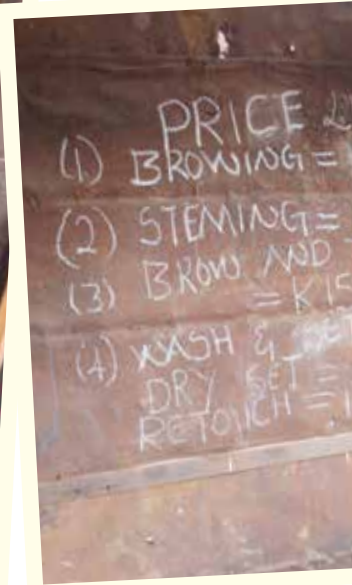 PRICE
(1) BROWING =
(2) STEMING =
(3) BROW AND
= K15
(4) WASH & SET
DRY SET =
RETOUCH =